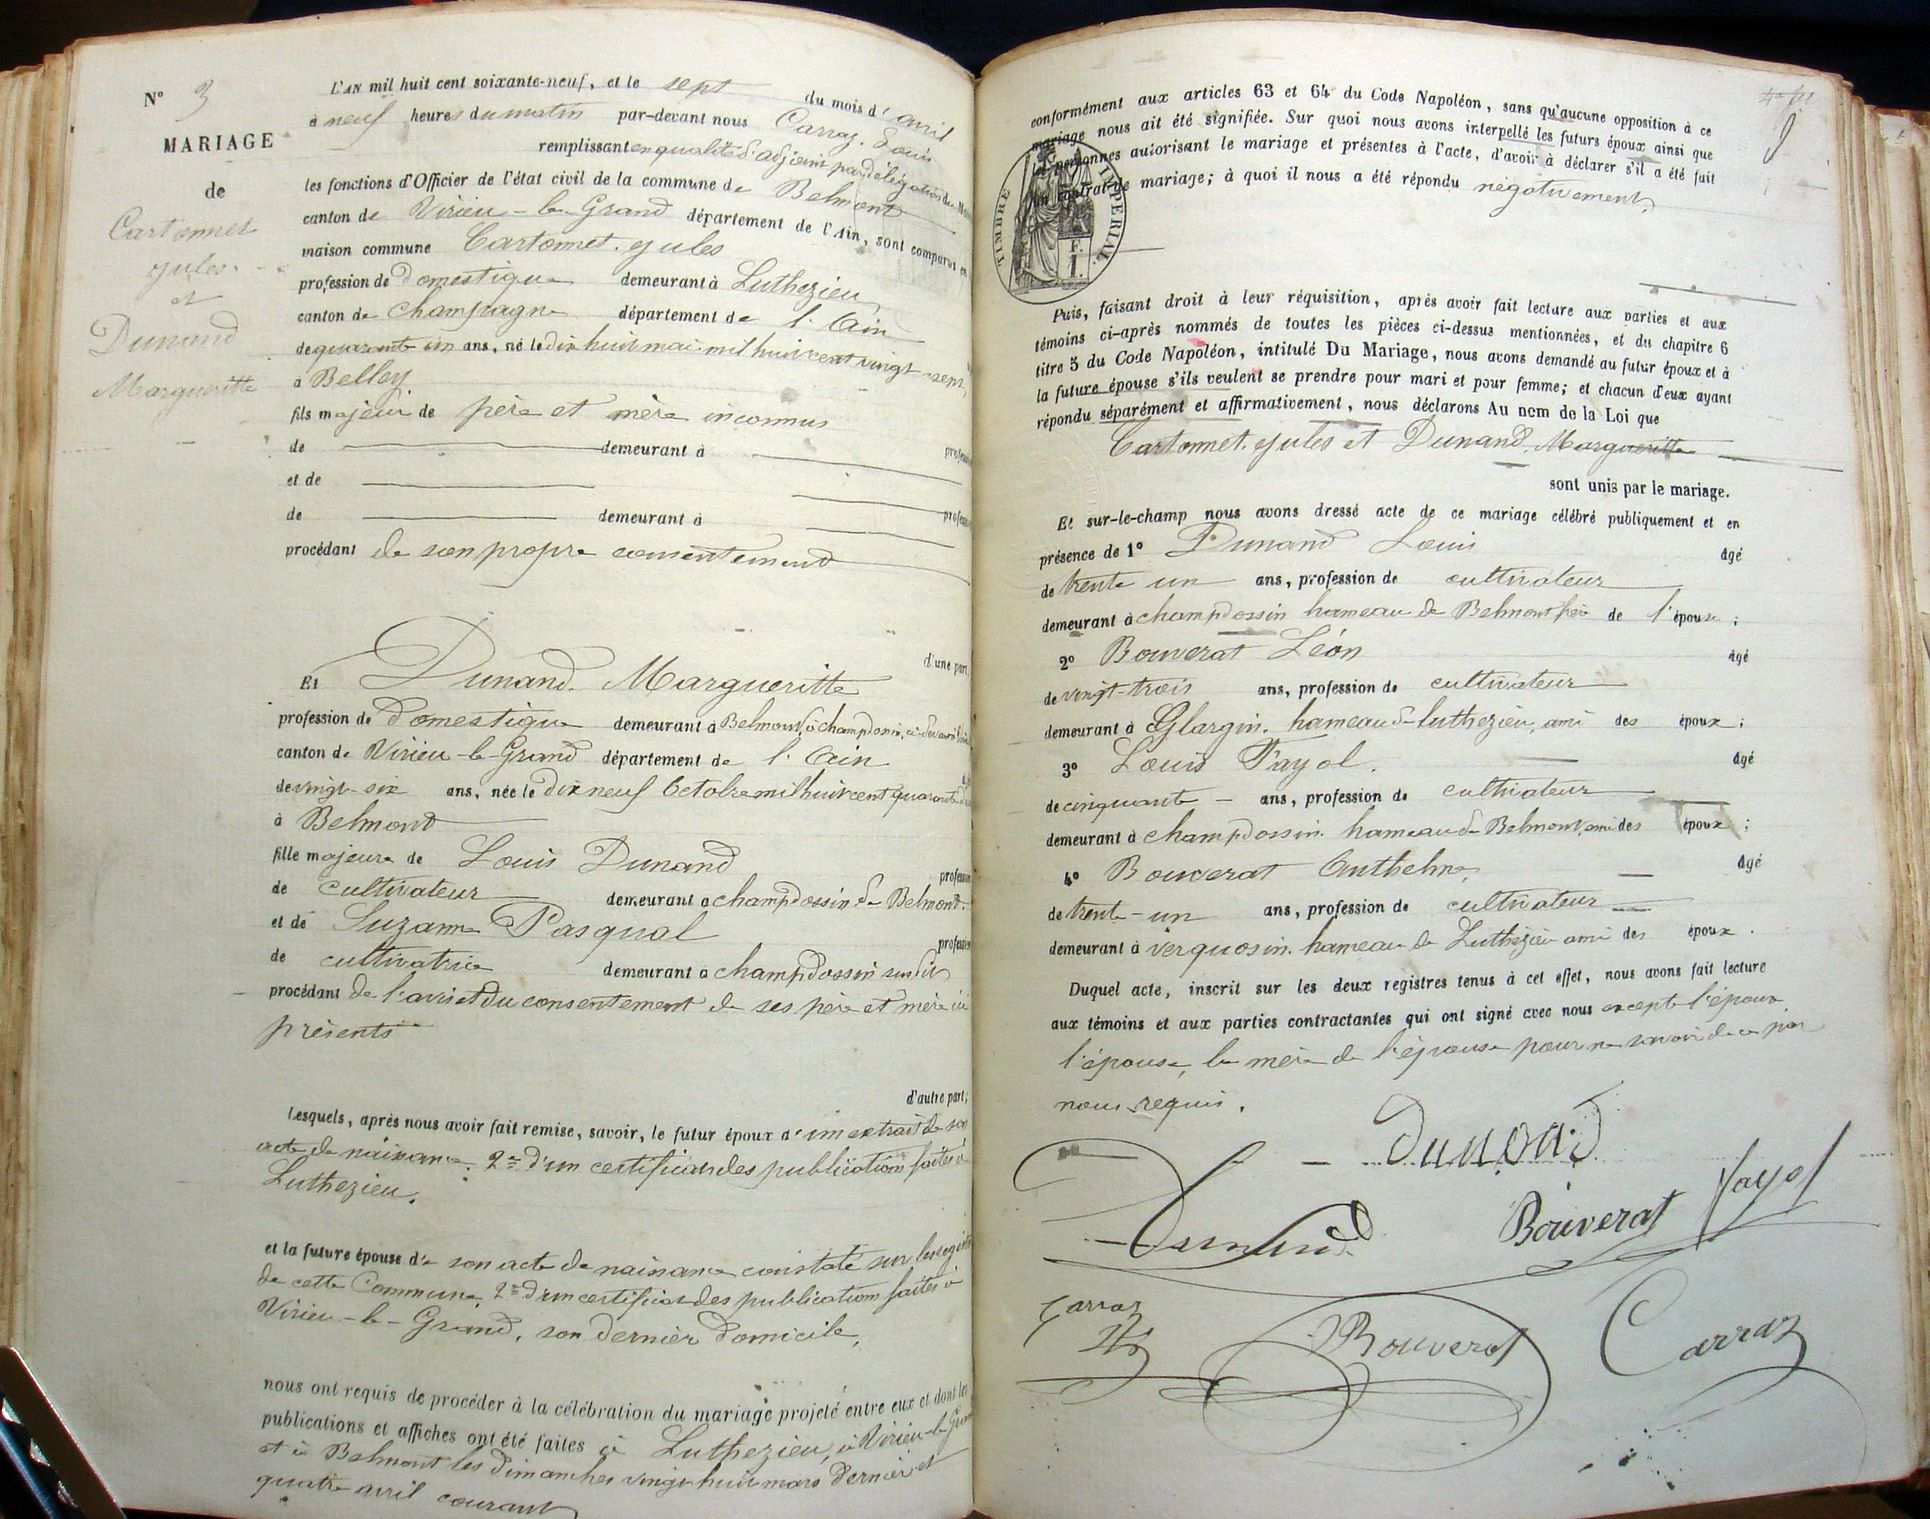 N° 3
MARIAGE
de
Cartonnet
Jules
et
Dunand
Margueritte
L'AN mil huit cent soixante-neuf, et le sept du mois d'avril
à neuf heures du matin par-devant nous Carraz Louis
remplissant en qualité d'adjoint par délégation du
les fonctions d'Officier de l'état civil de la commune de Belmont
canton de Virieu-le-Grand département de l'Ain, sont comparus en
maison commune Cartonnet Jules
profession de domestique demeurant à Luthezieu
canton de Champagne département de l'Ain
de quarante un ans, né le dix huit mai mil huit cent vingt-sept
à Belley
fils majeur de père et mère inconnus
de demeurant à
et de
de demeurant à
procédant de son propre consentement
d'une part,
Et Dunand Margueritte
profession de domestique demeurant à Belmont, à champdossin, ci-devant
canton de Virieu-le-Grand département de l'Ain
de vingt-six ans, née le dix neuf Octobre mil huit cent quarante
à Belmont
fille majeure de Louis Dunand profession
de cultivateur demeurant à champdossin de Belmont
et de Suzanne Pasqual profession
de cultivatrice demeurant à champdossin susdit
procédant de l'avis et du consentement de ses père et mère ici
présents
d'autre part;
Lesquels, après nous avoir fait remise, savoir, le futur époux d'un extrait de son
acte de naissance. 2° d'un certificat des publications faites à
Luthezieu.
et la future épouse d'e son acte de naissance constaté sur les registres
de cette Commune, 2° d'un certificat des publications faites à
Virieu-le-Grand, son dernier domicile,
nous ont requis de procéder à la célébration du mariage projeté entre eux et dont les
publications et affiches ont été faites à Luthezieu, à Virieu-le-Grand
et à Belmont les dimanches vingt huit mars dernier et
quatre avril courant
conformément aux articles 63 et 64 du Code Napoléon, sans qu'aucune opposition à ce
mariage nous ait été signifiée. Sur quoi nous avons interpellé les futurs époux ainsi que
les personnes autorisant le mariage et présentes à l'acte, d'avoir à déclarer s'il a été fait
un contrat de mariage; à quoi il nous a été répondu négativement.
TIMBRE IMPERIAL
F.
1.
Puis, faisant droit à leur réquisition, après avoir fait lecture aux parties et aux
témoins ci-après nommés de toutes les pièces ci-dessus mentionnées, et du chapitre 6
titre 5 du Code Napoléon, intitulé Du Mariage, nous avons demandé au futur époux et à
la future épouse s'ils veulent se prendre pour mari et pour femme; et chacun d'eux ayant
répondu séparément et affirmativement, nous déclarons Au nom de la Loi que
Cartonnet Jules et Dunand Margueritte
sont unis par le mariage.
Et sur-le-champ nous avons dressé acte de ce mariage célébré publiquement et en
présence de 1° Dunand Louis âgé
de trente un ans, profession de cultivateur
demeurant à champdossin hameau de Belmont de l'épouse;
2° Bouverat Léon âgé
de vingt-trois ans, profession de cultivateur
demeurant à Glargin, hameau de luthezieu, ami des époux;
3° Louis Fayol. âgé
de cinquante ans, profession de cultivateur
demeurant à champdossin hameau de Belmont, ami des époux;
4° Bouverat Anthelme âgé
de trente-un ans, profession de cultivateur
demeurant à verquosin hameau de Luthezieu ami des époux.
Duquel acte, inscrit sur les deux registres tenus à cet effet, nous avons fait lecture
aux témoins et aux parties contractantes qui ont signé avec nous excepté l'époux
l'épouse, la mère de l'épouse pour ne savoir de ce par
nous requis.
Dunand
Dunand
Bouverat
fayol
Carraz
Bouverat
Carraz